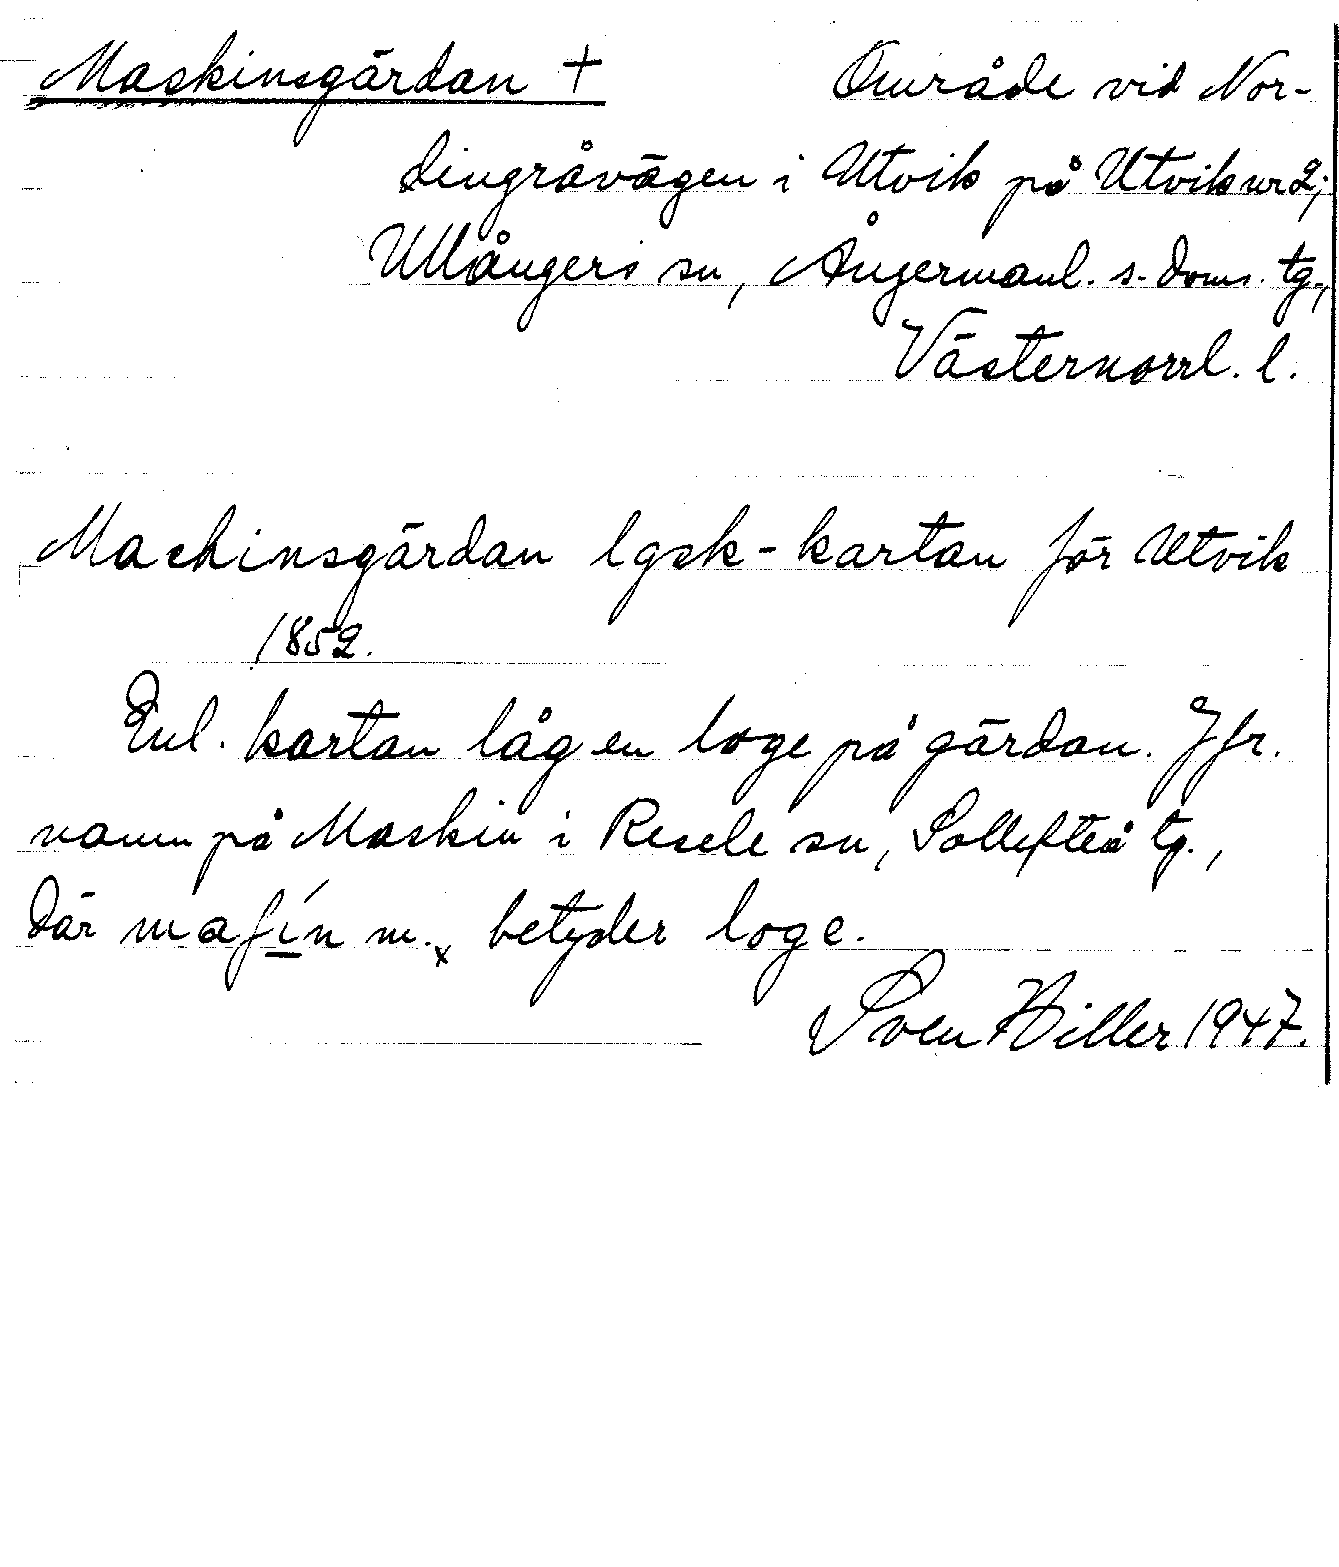 Maskinsgärdan + Område vid Nor-
dingråvägen i Utvik på Utvik nr 2;
Ullångers sn, Ångermanl. s. doms. tg.,
Västernorrl. l.
Machinsgärdan lgsk-kartan för Utvik
1852.
Enl. kartan låg en loge på gärdan. Jfr.
namn på Maskin i Resele sn, Sollefteå tg.,
där maʃín m. betyder loge.
Sven Hiller 1947.